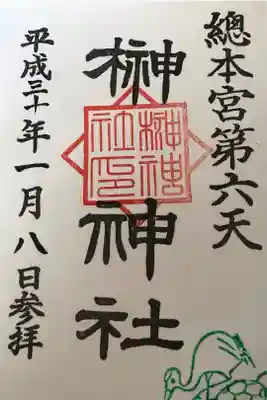 總本宮第六天
榊神社
榊神
社印
平成三十年一月八日参拝